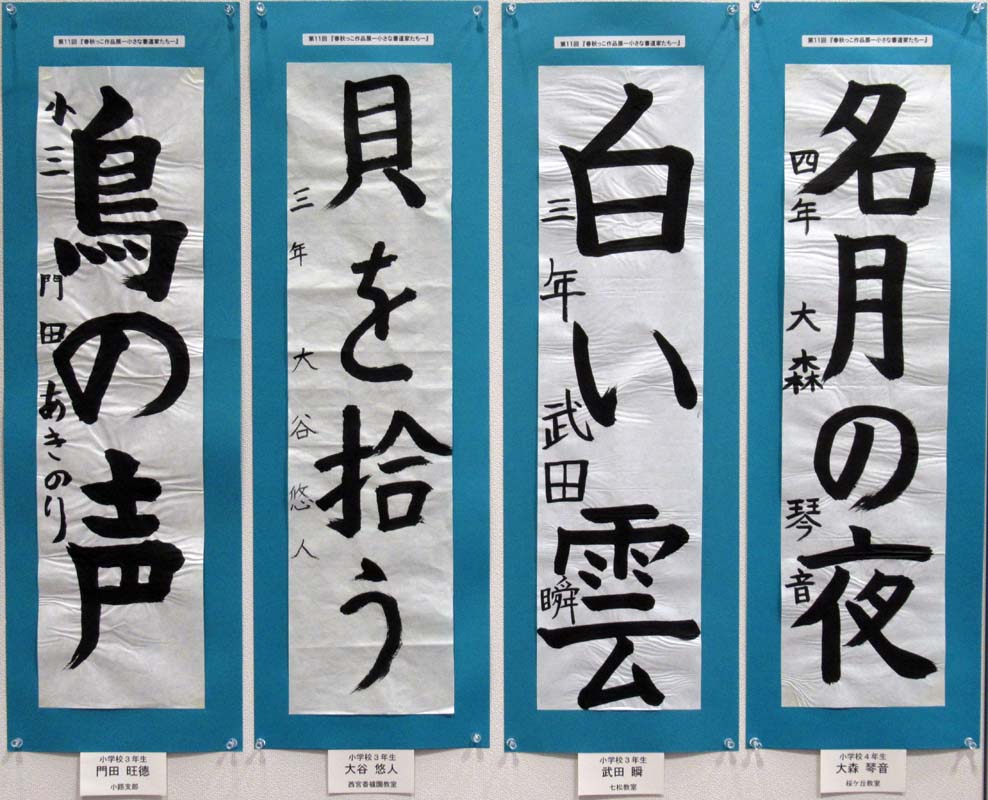 第11回『春秋っこ作品展ー小さな書道家たちー』
鳥の声
小三 門田あきのり
小学校3年生
門田 旺德
小路支部
第11回『春秋っこ作品展ー小さな書道家たちー』
貝を拾う
三年 大谷悠人
小学校3年生
大谷 悠人
西宮香櫨園教室
第11回『春秋っこ作品展ー小さな書道家たちー』
白い雲
三年 武田 瞬
小学校3年生
武田 瞬
七松教室
第11回『春秋っこ作品展ー小さな書道家たちー』
名月の夜
四年 大森 琴音
小学校4年生
大森 琴音
桜ケ丘教室